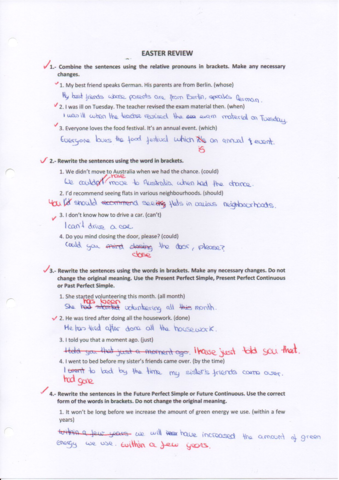 EASTER REVIEW
1.- Combine the sentences using the relative pronouns in brackets. Make any necessary
changes.
1. My best friend speaks German. His parents are from Berlin. (whose)
My best friends whose parents are from Berlin, speaks German.
2. I was ill on Tuesday. The teacher revised the exam material then. (when)
I was ill when the teacher revised the exam material on Tuesday.
3. Everyone loves the food festival. It's an annual event. (which)
Everyone loves the food festival which is an annual event.
is
2.- Rewrite the sentences using the word in brackets.
1. We didn't move to Australia when we had the chance. (could)
have
We couldn't move to Australia when had the chance.
2. I'd recommend seeing flats in various neighbourhoods. (should)
You should recommend seeing flats in various neighbourhoods.
3. I don't know how to drive a car. (can't)
I can't drive a car.
4. Do you mind closing the door, please? (could)
Could you mind closing the door, please?
close
3.- Rewrite the sentences using the words in brackets. Make any necessary changes. Do not
change the original meaning. Use the Present Perfect Simple, Present Perfect Continuous
or Past Perfect Simple.
1. She started volunteering this month. (all month)
has been
She had started volunteering all this month.
2. He was tired after doing all the housework. (done)
He after done all the housework.
3. I told you that a moment ago. (just)
I told you that just a moment ago. I have just told you that.
4. I went to bed before my sister's friends came over. (by the time)
I went to bed by the time my sister's friends came over.
had gone
4.- Rewrite the sentences in the Future Perfect Simple or Future Continuous. Use the correct
form of the words in brackets. Do not change the original meaning.
1. It won't be long before we increase the amount of green energy we use. (within a few
years)
within a few years we will have increased the amount of green
energy we use. within a few years.